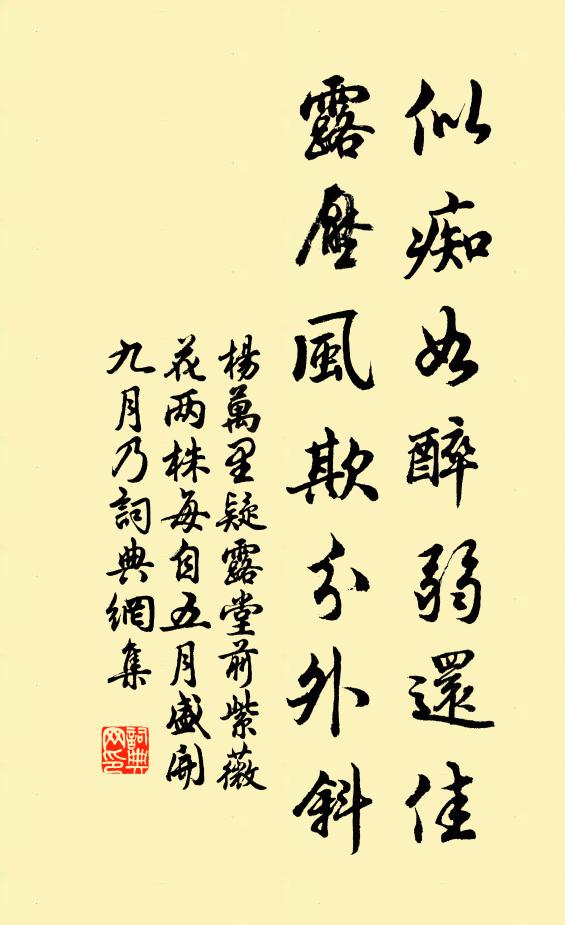 似痴如醉弱還佳
露壓風欺分外斜
楊萬里疑露堂前紫薇
花两株每自五月盛開
九月乃詞典網集
詞典
网印